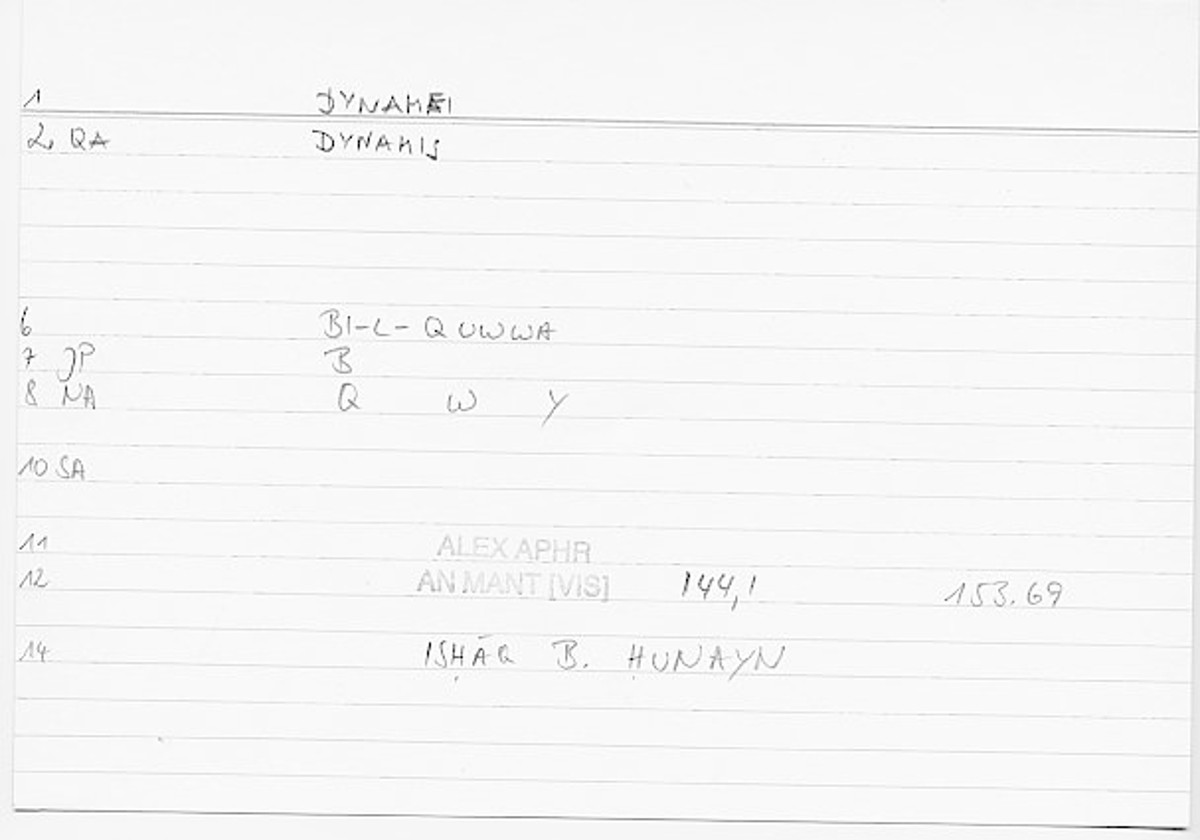 1 DYNAMEI
2, QA DYNAMIS
6 BI-L-QUWWA
7 JP B
8 NA Q W Y
10 SA
11 ALEX APHR
12 AN MANT [VIS] 144,1 153.69
14 ISḤĀQ B. ḤUNAYN